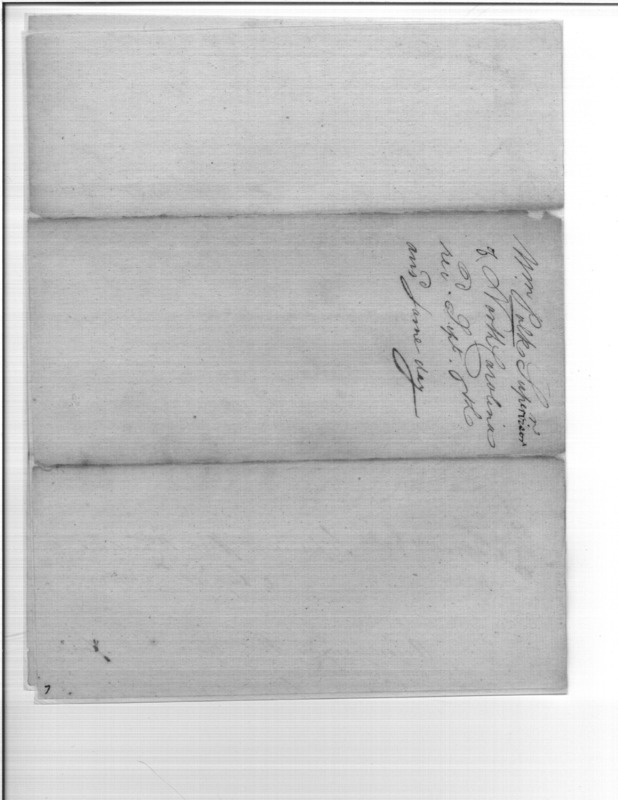 Wm Polk Supr.
Supervisor
of North Carolina
recd. Sept. 8th
and Same day
7